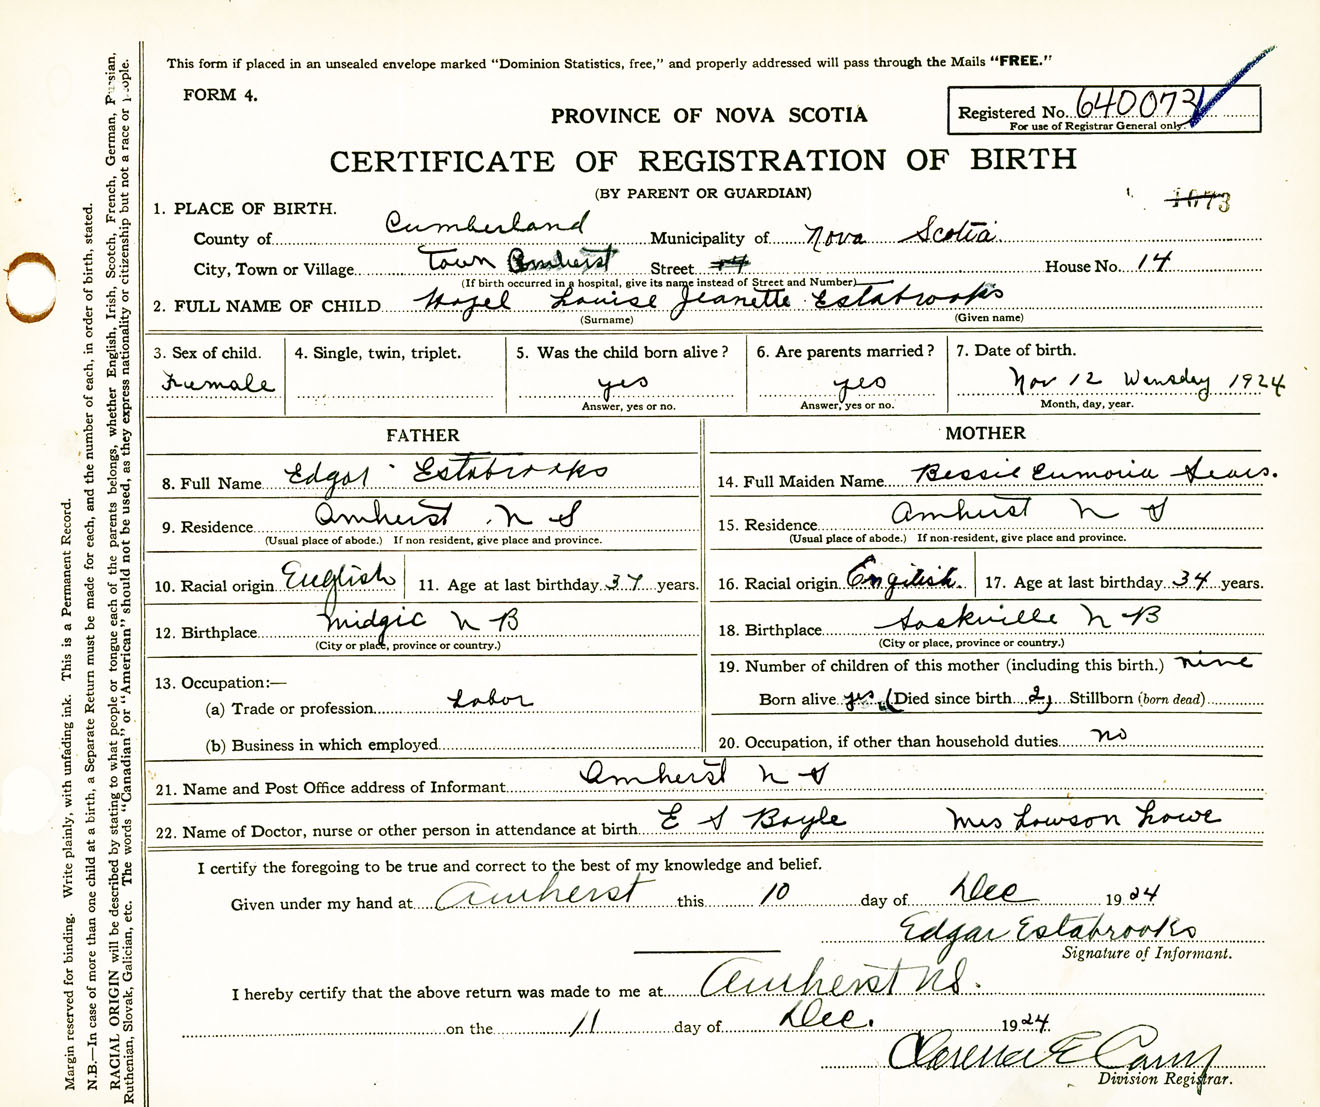 This form if placed in an unsealed envelope marked "Dominion Statistics, free," and properly addressed will pass through the Mails "FREE."
FORM 4.
PROVINCE OF NOVA SCOTIA
Registered No. 640073
For use of Registrar General only.
CERTIFICATE OF REGISTRATION OF BIRTH
(BY PARENT OR GUARDIAN)
1673
1. PLACE OF BIRTH.
County of Cumberland Municipality of Nova Scotia
City, Town or Village Town Amherst Street 14 House No. 14
(If birth occurred in a hospital, give its name instead of Street and Number)
2. FULL NAME OF CHILD Hazel Louise Jeanette Estabrooks
(Surname) (Given name)
3. Sex of child. 4. Single, twin, triplet. 5. Was the child born alive? 6. Are parents married? 7. Date of birth.
Fumale yes yes Nov 12 Wensday 1924
Answer, yes or no. Answer, yes or no. Month, day, year.
FATHER MOTHER
8. Full Name Edgar Estabrooks
14. Full Maiden Name Bessie Sears.
9. Residence Amherst N S
(Usual place of abode.) If non resident, give place and province.
15. Residence Amhurst N S
(Usual place of abode.) If non-resident, give place and province.
10. Racial origin English 11. Age at last birthday 37 years.
16. Racial origin Engilish. 17. Age at last birthday 34 years.
12. Birthplace Midgic N B
(City or place, province or country.)
18. Birthplace Sackville N B
(City or place, province or country.)
13. Occupation:—
(a) Trade or profession Labor
(b) Business in which employed
19. Number of children of this mother (including this birth.) nine
Born alive yes (Died since birth 2) Stillborn (born dead)
20. Occupation, if other than household duties no
21. Name and Post Office address of Informant Amherst N S
22. Name of Doctor, nurse or other person in attendance at birth E S Boyle Mrs Lawson Lowe
I certify the foregoing to be true and correct to the best of my knowledge and belief.
Given under my hand at Amherst this 10 day of Dec 1924
Edgar Estabrooks
Signature of Informant.
I hereby certify that the above return was made to me at Amherst NS.
on the 11 day of Dec. 1924
Clarence E
Division Registrar.
Margin reserved for binding. Write plainly, with unfading ink. This is a Permanent Record.
N.B.—In case of more than one child at a birth, a Separate Return must be made for each, and the number of each, in order of birth, stated.
RACIAL ORIGIN will be described by stating to what people or tongue each of the parents belongs, whether English, Irish, Scotch, French, German, Russian,
Ruthenian, Slovak, Galician, etc. The words "Canadian" or "American" should not be used, as they express nationality or citizenship but not a race or people.